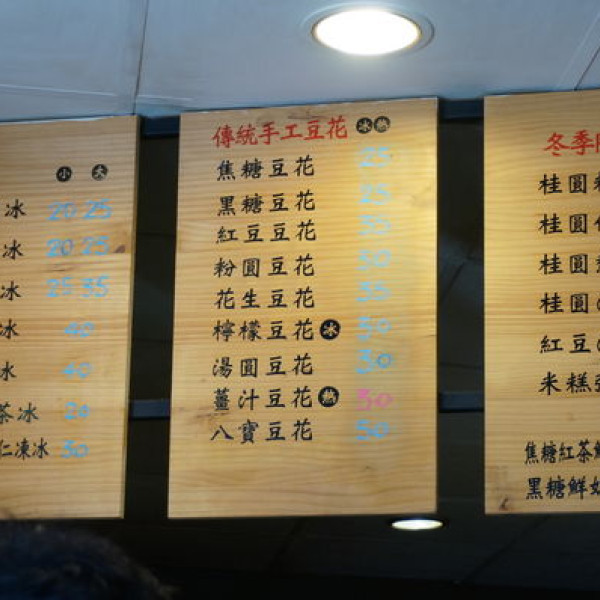 小 大
冰 20 25
冰 20 25
冰 25 35
冰 40
冰 40
茶冰 20
仁凍冰 30
傳統手工豆花 冰 熱
焦糖豆花 25
黑糖豆花 25
紅豆豆花 35
粉圓豆花 30
花生豆花 35
檸檬豆花 冰 30
湯圓豆花 30
薑汁豆花 熱 30
八寶豆花 50
冬季
桂圓
桂圓
桂圓
桂圓
紅豆
米糕
焦糖紅茶鮮
黑糖鮮奶